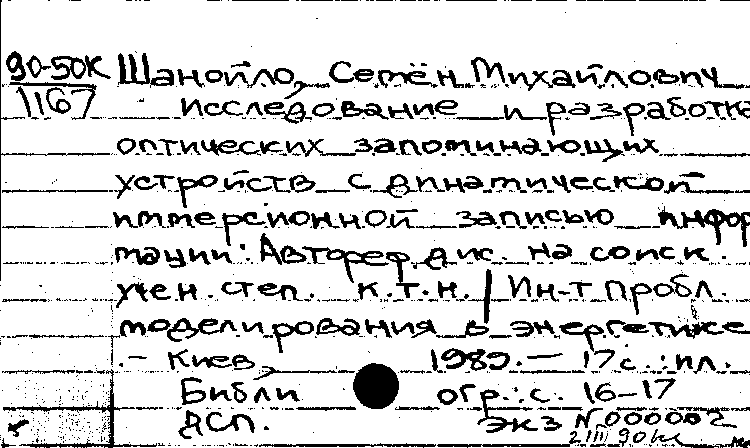 90-50К Шанойло, Семён Михайлович
1167 исследование и разработка
оптических запоминающих
устройств с динамической
иммерсионной записью инфор
мации: Автореф. дис. на соиск.
учен. степ. к.т.н. / Ин-т пробл.
моделирования в энергетике
.- Киев, 1989.- 17с.:ил.
Библи огр.: с. 16-17
ДСП. экз N000002